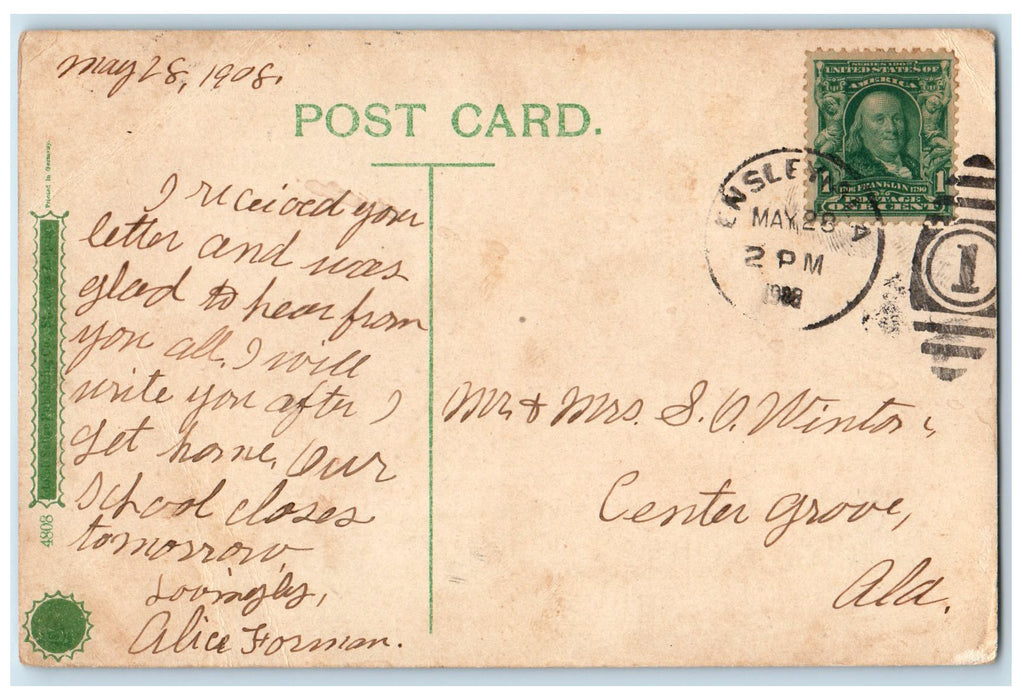 May 28, 1908.
POST CARD.
SERIES 1902
UNITED STATES OF
AMERICA
1706 FRANKLIN 1790
POSTAGE
1 1
ONE CENT
ENSLEY, ALA
MAY 28
2 PM
1908
1
I received you
letter and was
glad to hear from
you all. I will
write you after I
get home. Our
School closes
tomorrow
Lovingly,
Alice Forman.
Mr & Mrs. S. O. Winton,
Center Grove,
Ala.
Printed in Germany.
4808